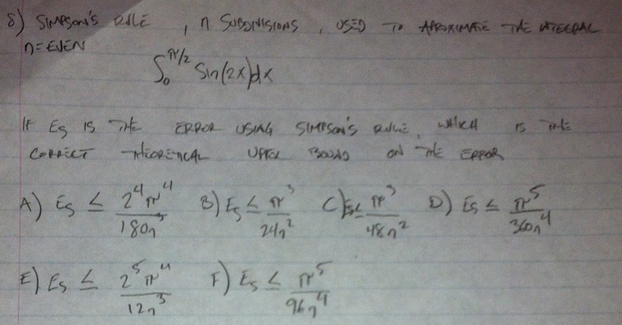 8) SIMPSON'S RULE , n SUBDIVISIONS , USED TO APROXIMATE THE INTEGRAL
n=EVEN
∫₀^(π/2) Sin(2x)dx
IF Es IS THE ERROR USING SIMPSON'S RULE, WHICH IS THE
CORRECT THEORETICAL UPPER BOUND ON THE ERROR
A) Es ≤ 2⁴π⁴/180n³ B) Es ≤ π³/24n² C) Es ≤ π³/48n² D) Es ≤ π⁵/360n⁴
E) Es ≤ 2⁵π⁴/12n³ F) Es ≤ π⁵/96n⁴